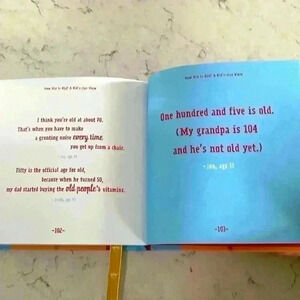 How Old Is Old? A Kid's-Eye View
I think you're old at about 70.
That's when you have to make
a grunting noise every time
you get up from a chair.
Fifty is the official age for old,
because when he turned 50,
my dad started buying the old people's vitamins.
-102-
How Old Is Old? A Kid's-Eye View
One hundred and five is old.
(My grandpa is 104
and he's not old yet.)
-103-